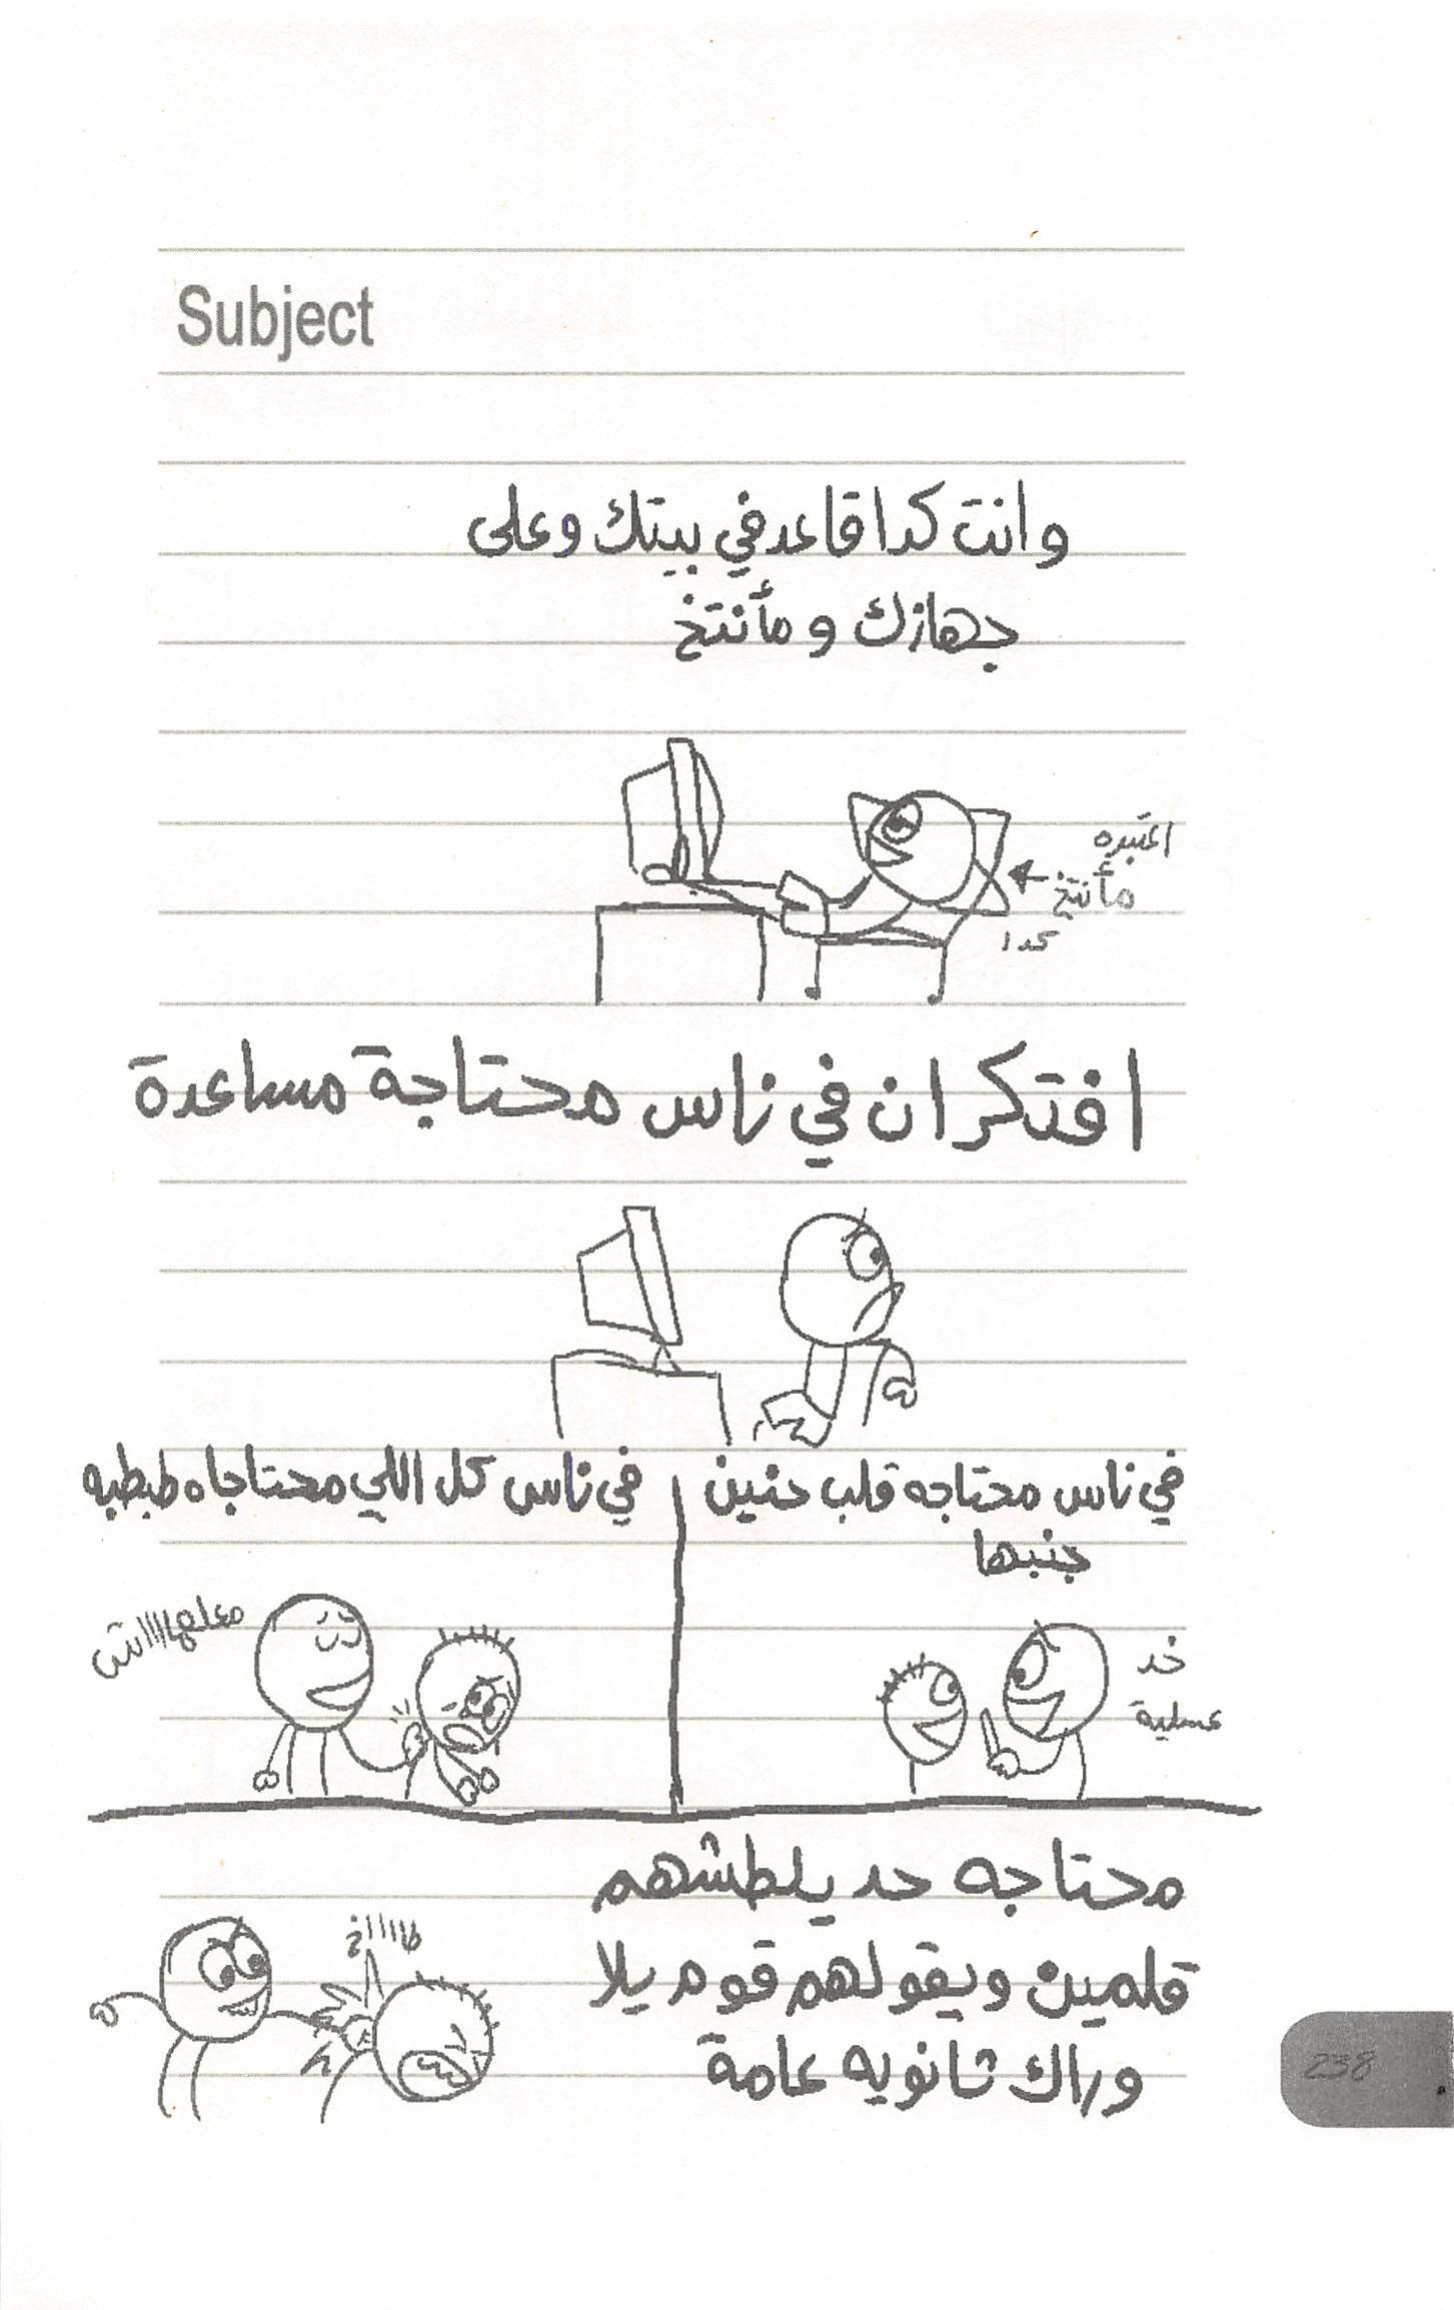 Subject
وانت كدا قاعد في بيتك وعلى
جهازك ومأنتخ
اعتبره
مأنتخ
كدا
افتكر ان في ناس محتاجة مساعدة
في ناس محتاجه قلب حنين
جنبها
خد
عسلية
في ناس كل اللي محتاجاه طبطبه
معلهااااتش
محتاجه حد يلطشهم
قلمين ويقولهم قوم يلا
وراك ثانويه عامة
طاااااخ
238